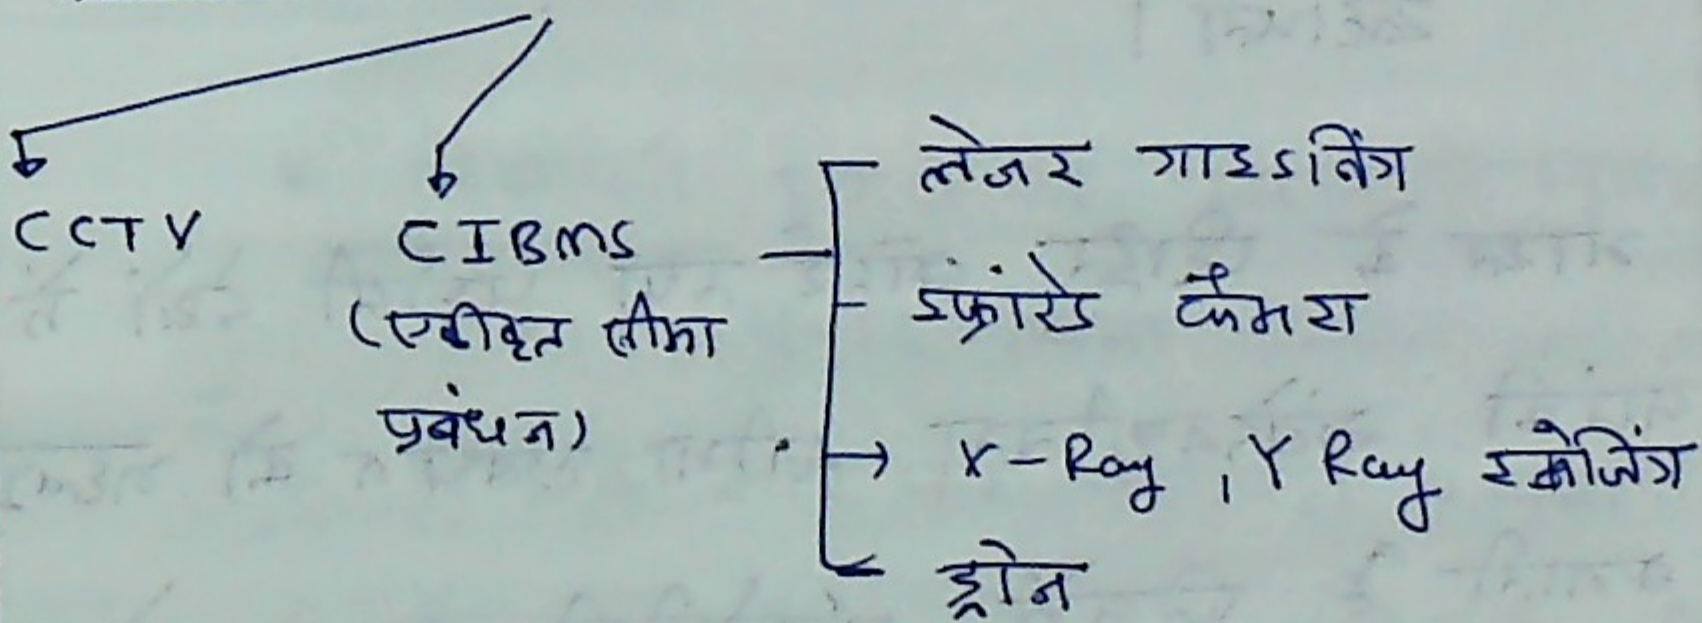 CCTV
CIBMS
(एकीकृत सीमा
प्रबंधन)
लेजर गाइडनिंग
इंफ्रारेड कैमरा
X-Ray, Y Ray स्केनिंग
ड्रोन